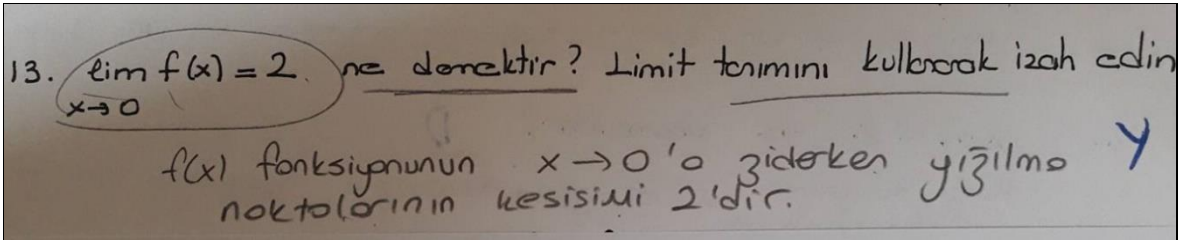 13. lim f(x) = 2 ne demektir? Limit tanımını kullanarak izah edin
x→0
f(x) fonksiyonunun x→0'a giderken yığılma Y
noktalarının kesisimi 2'dir.